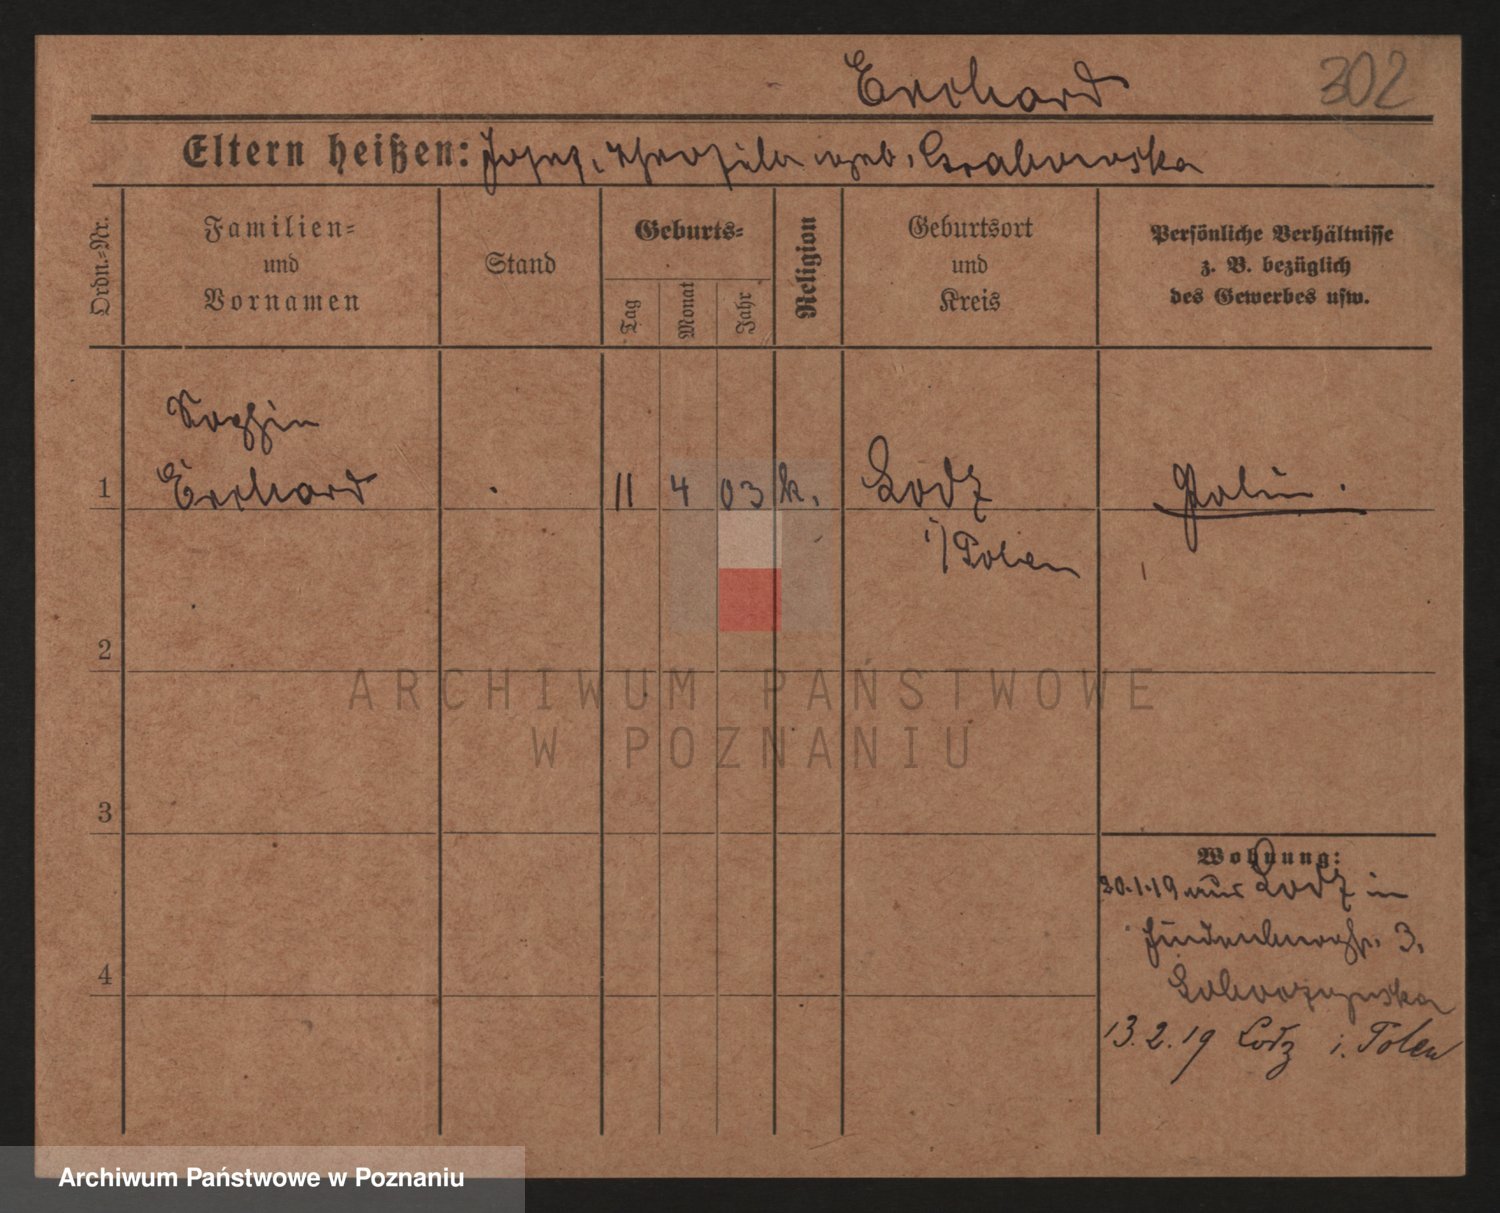 302
Erchard
Eltern heißen: Josef, Theofila geb. Grabowska
Ordn.-Nr.
Familien-
und
Vornamen
Stand
Geburts-
Tag
Monat
Jahr
Religion
Geburtsort
und
Kreis
Persönliche Verhältnisse
z. B. bezüglich
des Gewerbes usw.
Sophie
1 Erchard 11 4 03 k. Lodz Polin.
i/Polen
2
ARCHIWUM PAŃSTWOWE
W POZNANIU
3
Wohnung:
20.1.19 aus Lodz in
3.
4
13.2.19 Lodz i. Polen
Archiwum Państwowe w Poznaniu